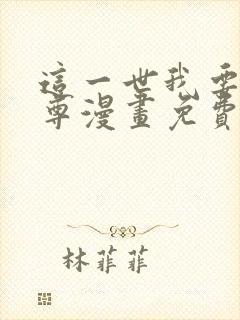 這一世我要
尊漫畫免費
林菲菲